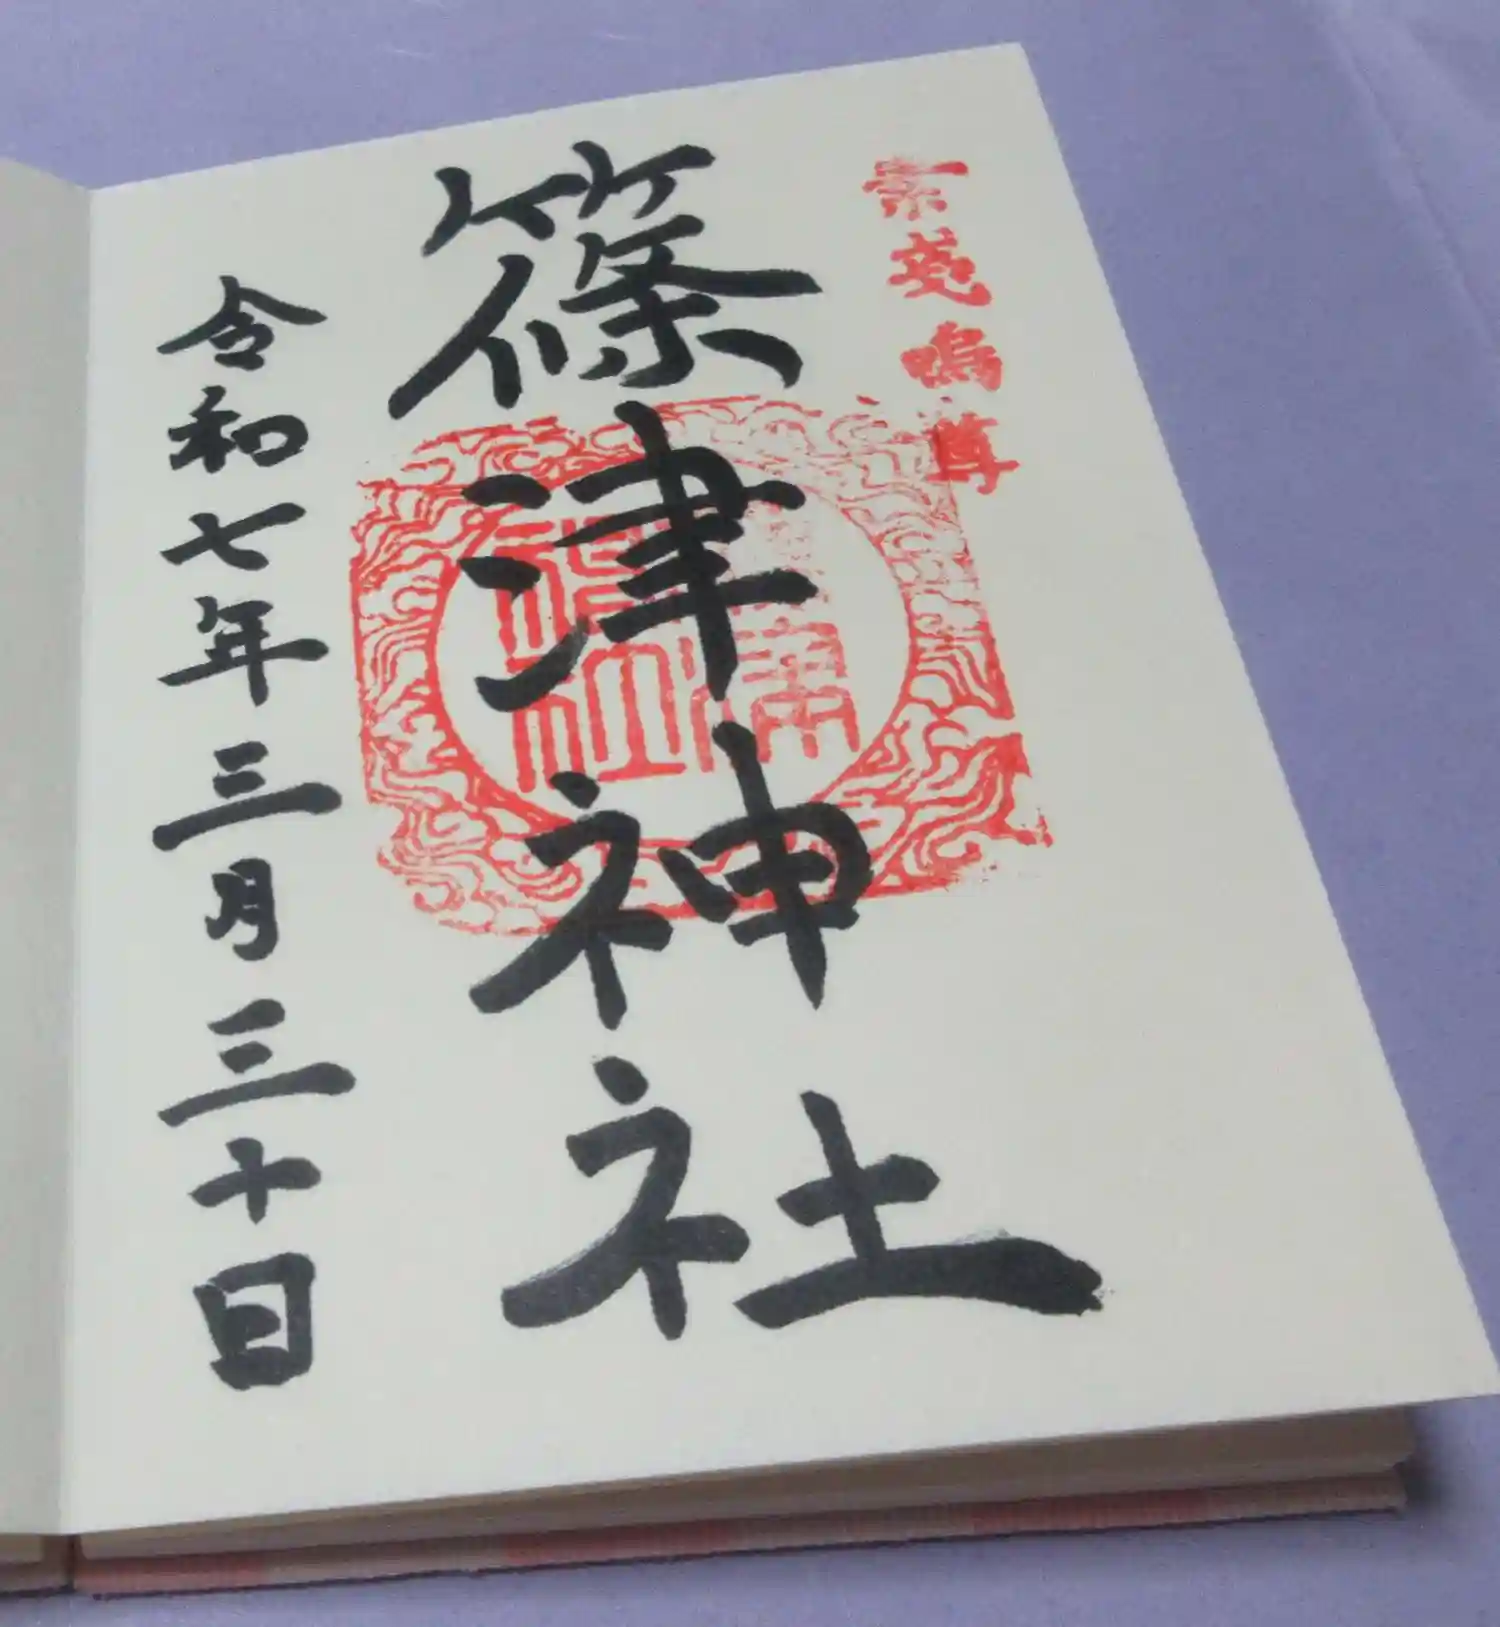 素戔嗚尊
篠津神社
令和七年三月三十日